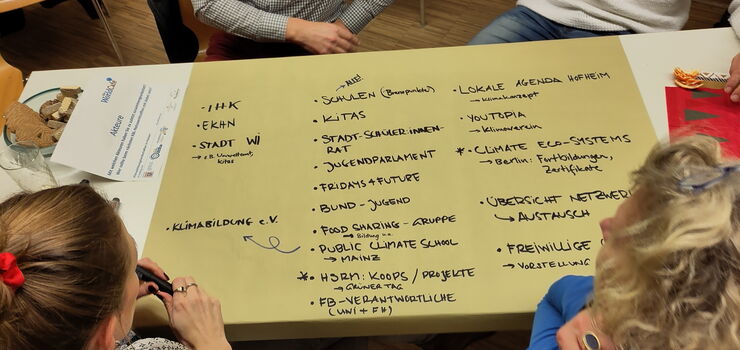 Akteure
• IHK
• EKHN
• STADT WI
→ z.B. Umweltamt,
Kitas
• KLIMABILDUNG e.V.
ALLE!
• SCHULEN (Brennpunkte)
• KITAS
• STADT-SCHÜLER:INNEN-
RAT
• JUGENDPARLAMENT
• FRIDAYS4FUTURE
• BUND-JUGEND
• FOOD SHARING-GRUPPE
→ Bildung
• PUBLIC CLIMATE SCHOOL
→ MAINZ
* • HSRM: KOOPS / PROJEKTE
→ GRÜNER TAG
• FB-VERANTWORTLICHE
(UNI + FH)
• LOKALE AGENDA HOFHEIM
→ Klimakonzept
• YOUTOPIA
→ Klimaverein
* • CLIMATE ECO-SYSTEMS
→ Berlin: Fortbildungen,
Zertifikate
• ÜBERSICHT NETZWER
↳ AUSTAUSCH
• FREIWILLIGE
→ VORSTELLUNG